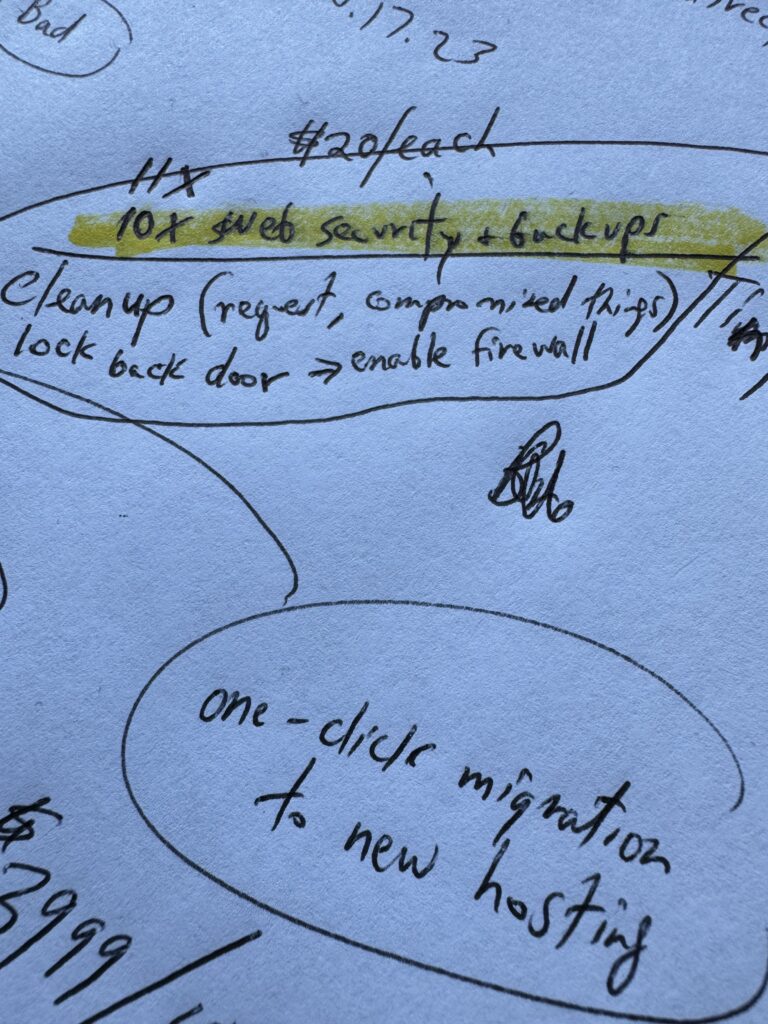 Bad
.17.23
$20/each
11x
10x web security + backups
Cleanup (request, compromized things)
lock back door → enable firewall
one-click migration
to new hosting
$
3999/